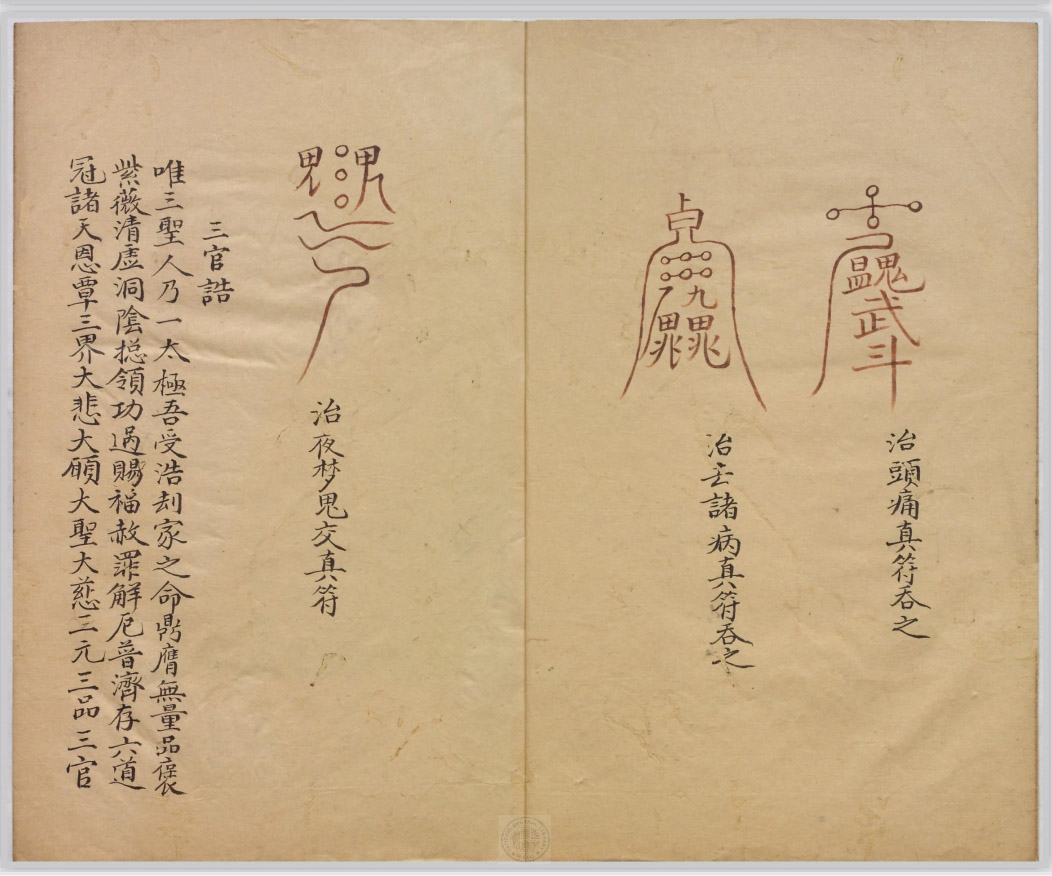 治頭痛真符吞之
治去諸病真符吞之
治夜梦鬼交真符
三官誥
唯三聖人乃一太極吾受浩刦家之命鼎膺無量品褒
紫薇清虛洞陰揔領功過賜福赦罪解厄普濟存六道
冠諸天恩覃三界大悲大願大聖大慈三元三品三官